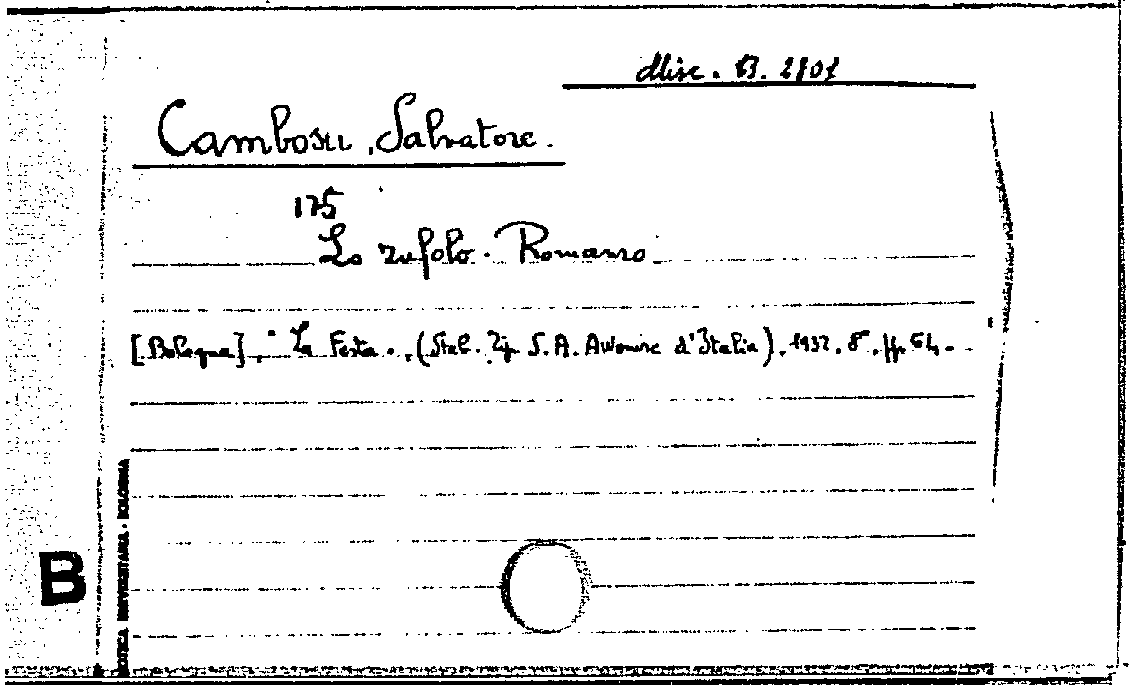 Misc. B. 2801
Cambosu, Salvatore.
175
Lo zufolo. Romanzo.
[Bologna], "La Festa", (Stab. Tip. S. A. Avvenire d'Italia), 1932, 8°, pp. 64.
B
BIBLIOTECA UNIVERSITARIA - BOLOGNA